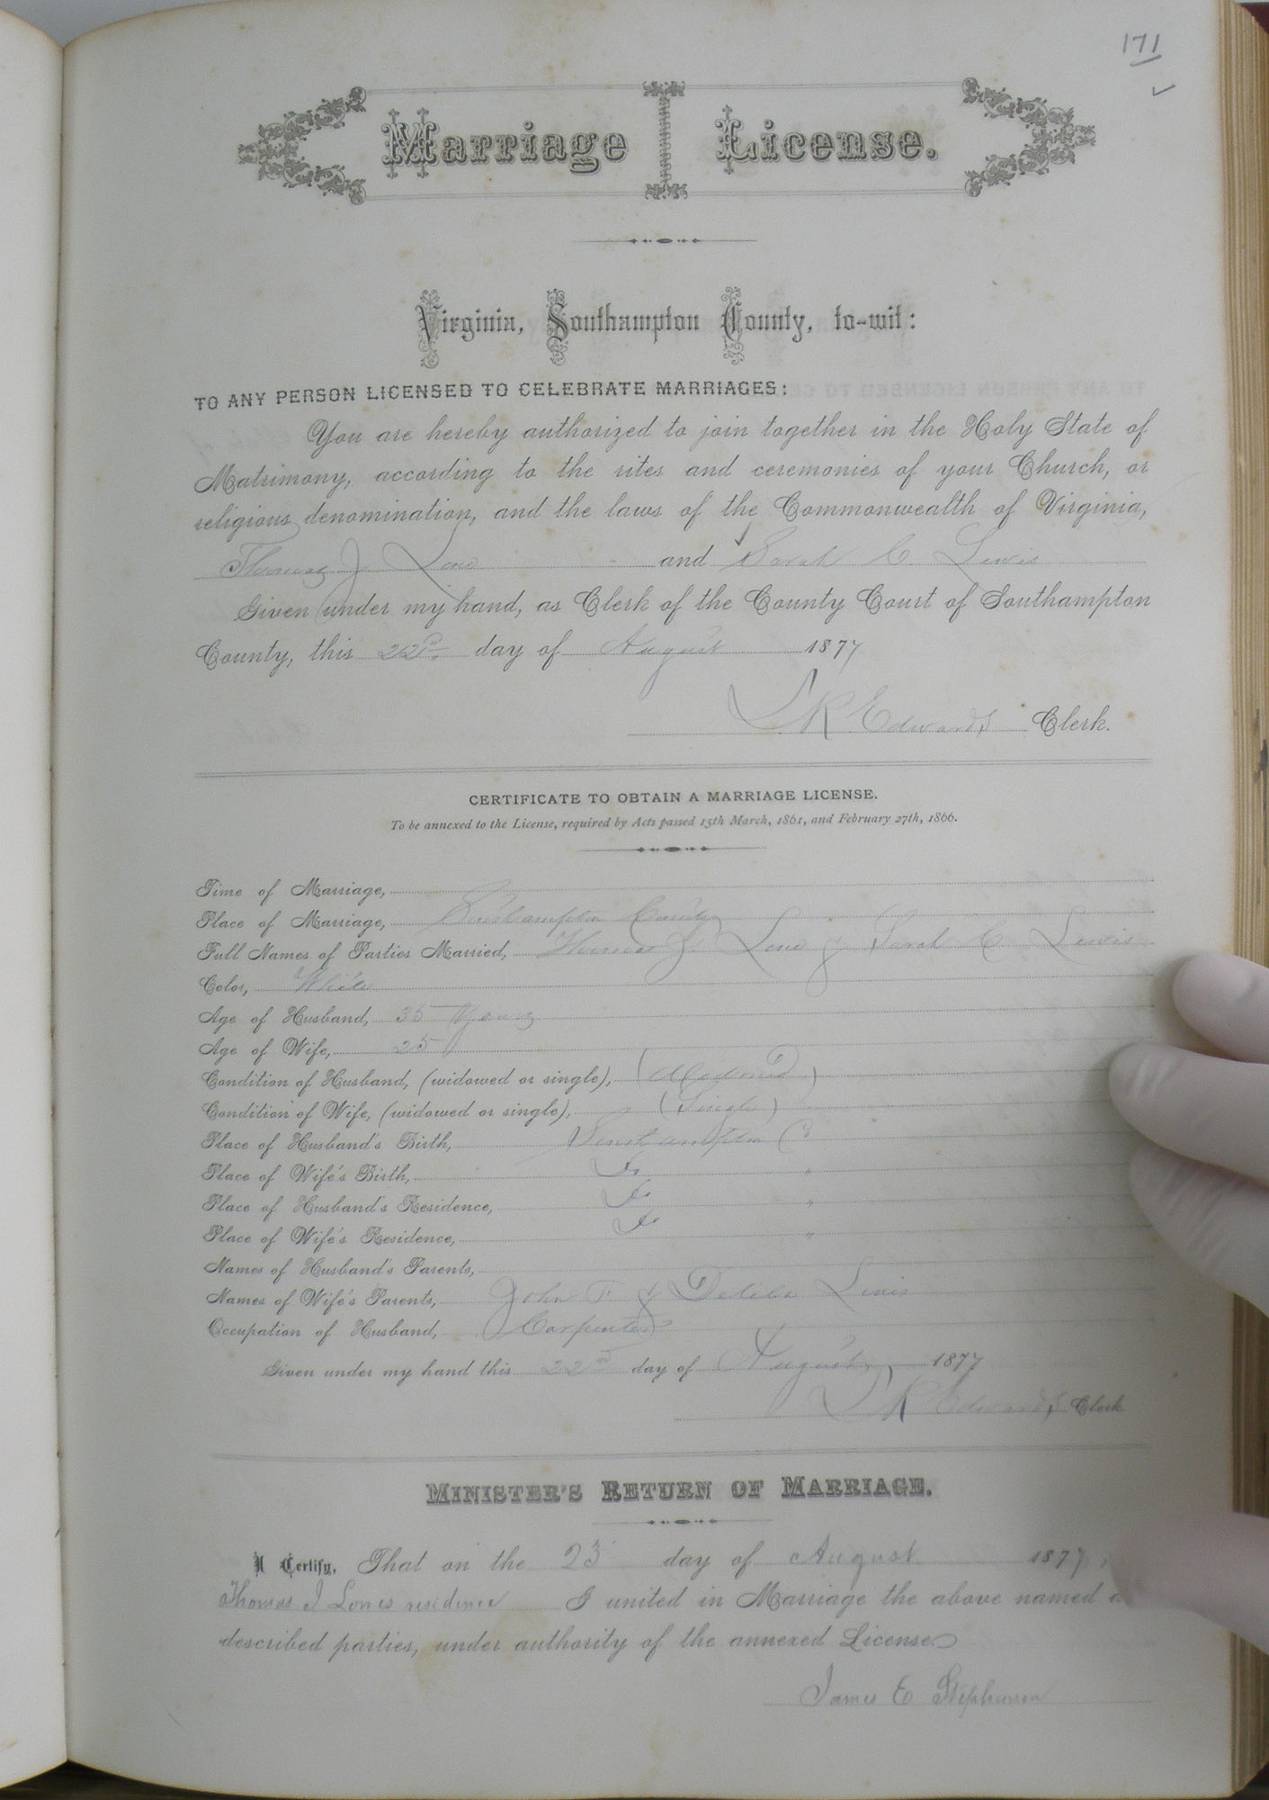 171
Marriage License.
Virginia, Southampton County, to-wit:
TO ANY PERSON LICENSED TO CELEBRATE MARRIAGES:
You are hereby authorized to join together in the Holy State of
Matrimony, according to the rites and ceremonies of your Church, or
religious denomination, and the laws of the Commonwealth of Virginia,
Thomas J. and Sarah C. Lewis
Given under my hand, as Clerk of the County Court of Southampton
County, this 22d day of August 1877
L R Edwards Clerk.
CERTIFICATE TO OBTAIN A MARRIAGE LICENSE.
To be annexed to the License, required by Acts passed 15th March, 1861, and February 27th, 1866.
Time of Marriage,
Place of Marriage, Southampton County
Full Names of Parties Married, Thomas J. & Sarah C. Lewis
Color, White
Age of Husband, 35 Years
Age of Wife, 25
Condition of Husband, (widowed or single), (Widowed)
Condition of Wife, (widowed or single), (Single)
Place of Husband's Birth, Southampton Co
Place of Wife's Birth, Do "
Place of Husband's Residence, Do "
Place of Wife's Residence, Do "
Names of Husband's Parents,
Names of Wife's Parents, John F & Lewis
Occupation of Husband, Carpenter
Given under my hand this 22d day of August, 1877
L R Edwards, Clerk
MINISTER'S RETURN OF MARRIAGE.
I Certify, That on the 23 day of August 1877,
Thomas J residence I united in Marriage the above named
described parties, under authority of the annexed License
James E Stephenson